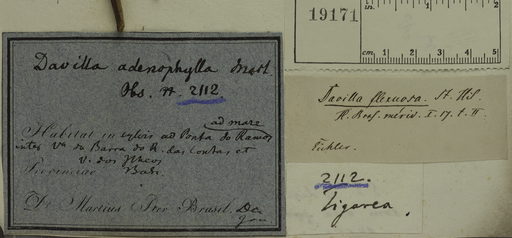 Davilla adenophylla Mart.
Obs. n. 2112
ad mare
Habitat in sylvis ad Ponta do Ramos
inter Va da Barra do R. das Contas, et
V. dos Ilheos
Provinciae Bah.
Dr. Martius Iter Brasil.
19171
in. 1 2
cm. 1 2 3 4 5
Davilla flexuosa. St. Hil.
Eichler.
2112.
Tigarea